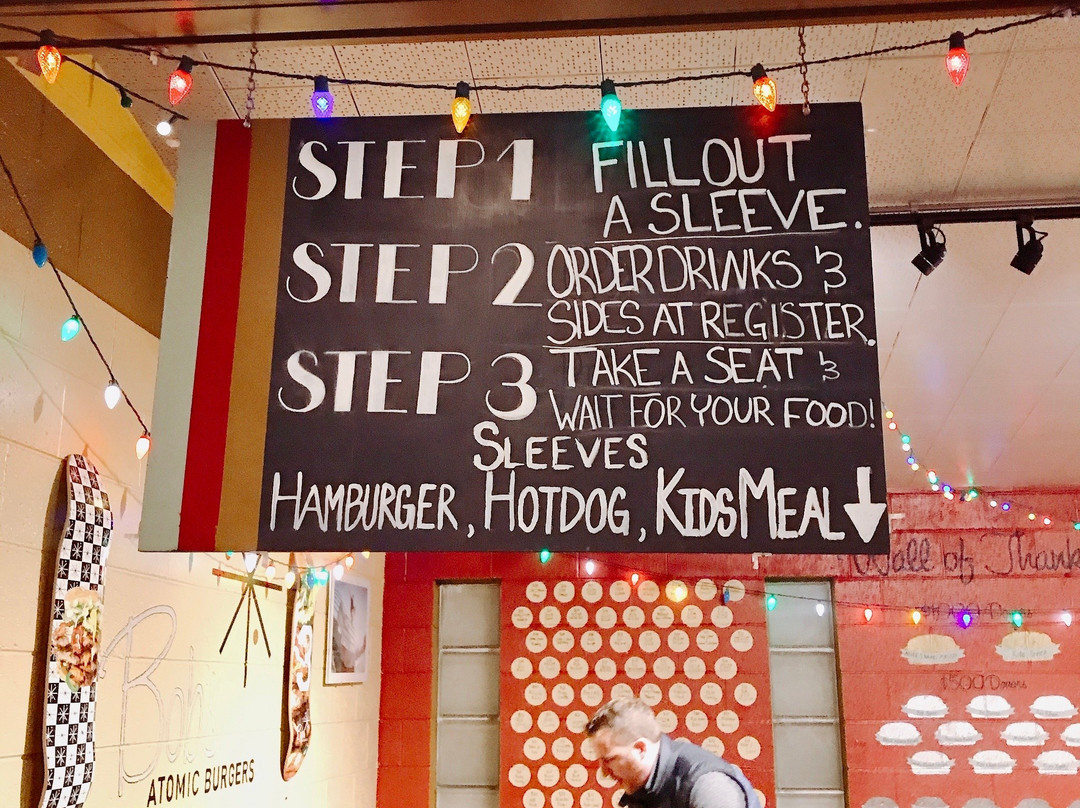 STEP 1 FILL OUT
A SLEEVE.
STEP 2 ORDER DRINKS &
SIDES AT REGISTER.
STEP 3 TAKE A SEAT &
WAIT FOR YOUR FOOD!
SLEEVES
HAMBURGER, HOTDOG, KIDS MEAL
Wall of Thank
$500 Donors
Bob's
ATOMIC BURGERS